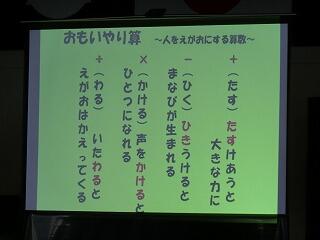 おもいやり算 ～人をえがおにする算数～
＋（たす）たすけあうと
大きな力に
－（ひく）ひきうけると
まなびが生まれる
×（かける）声をかけると
ひとつになれる
÷（わる）いたわると
えがおはかえってくる